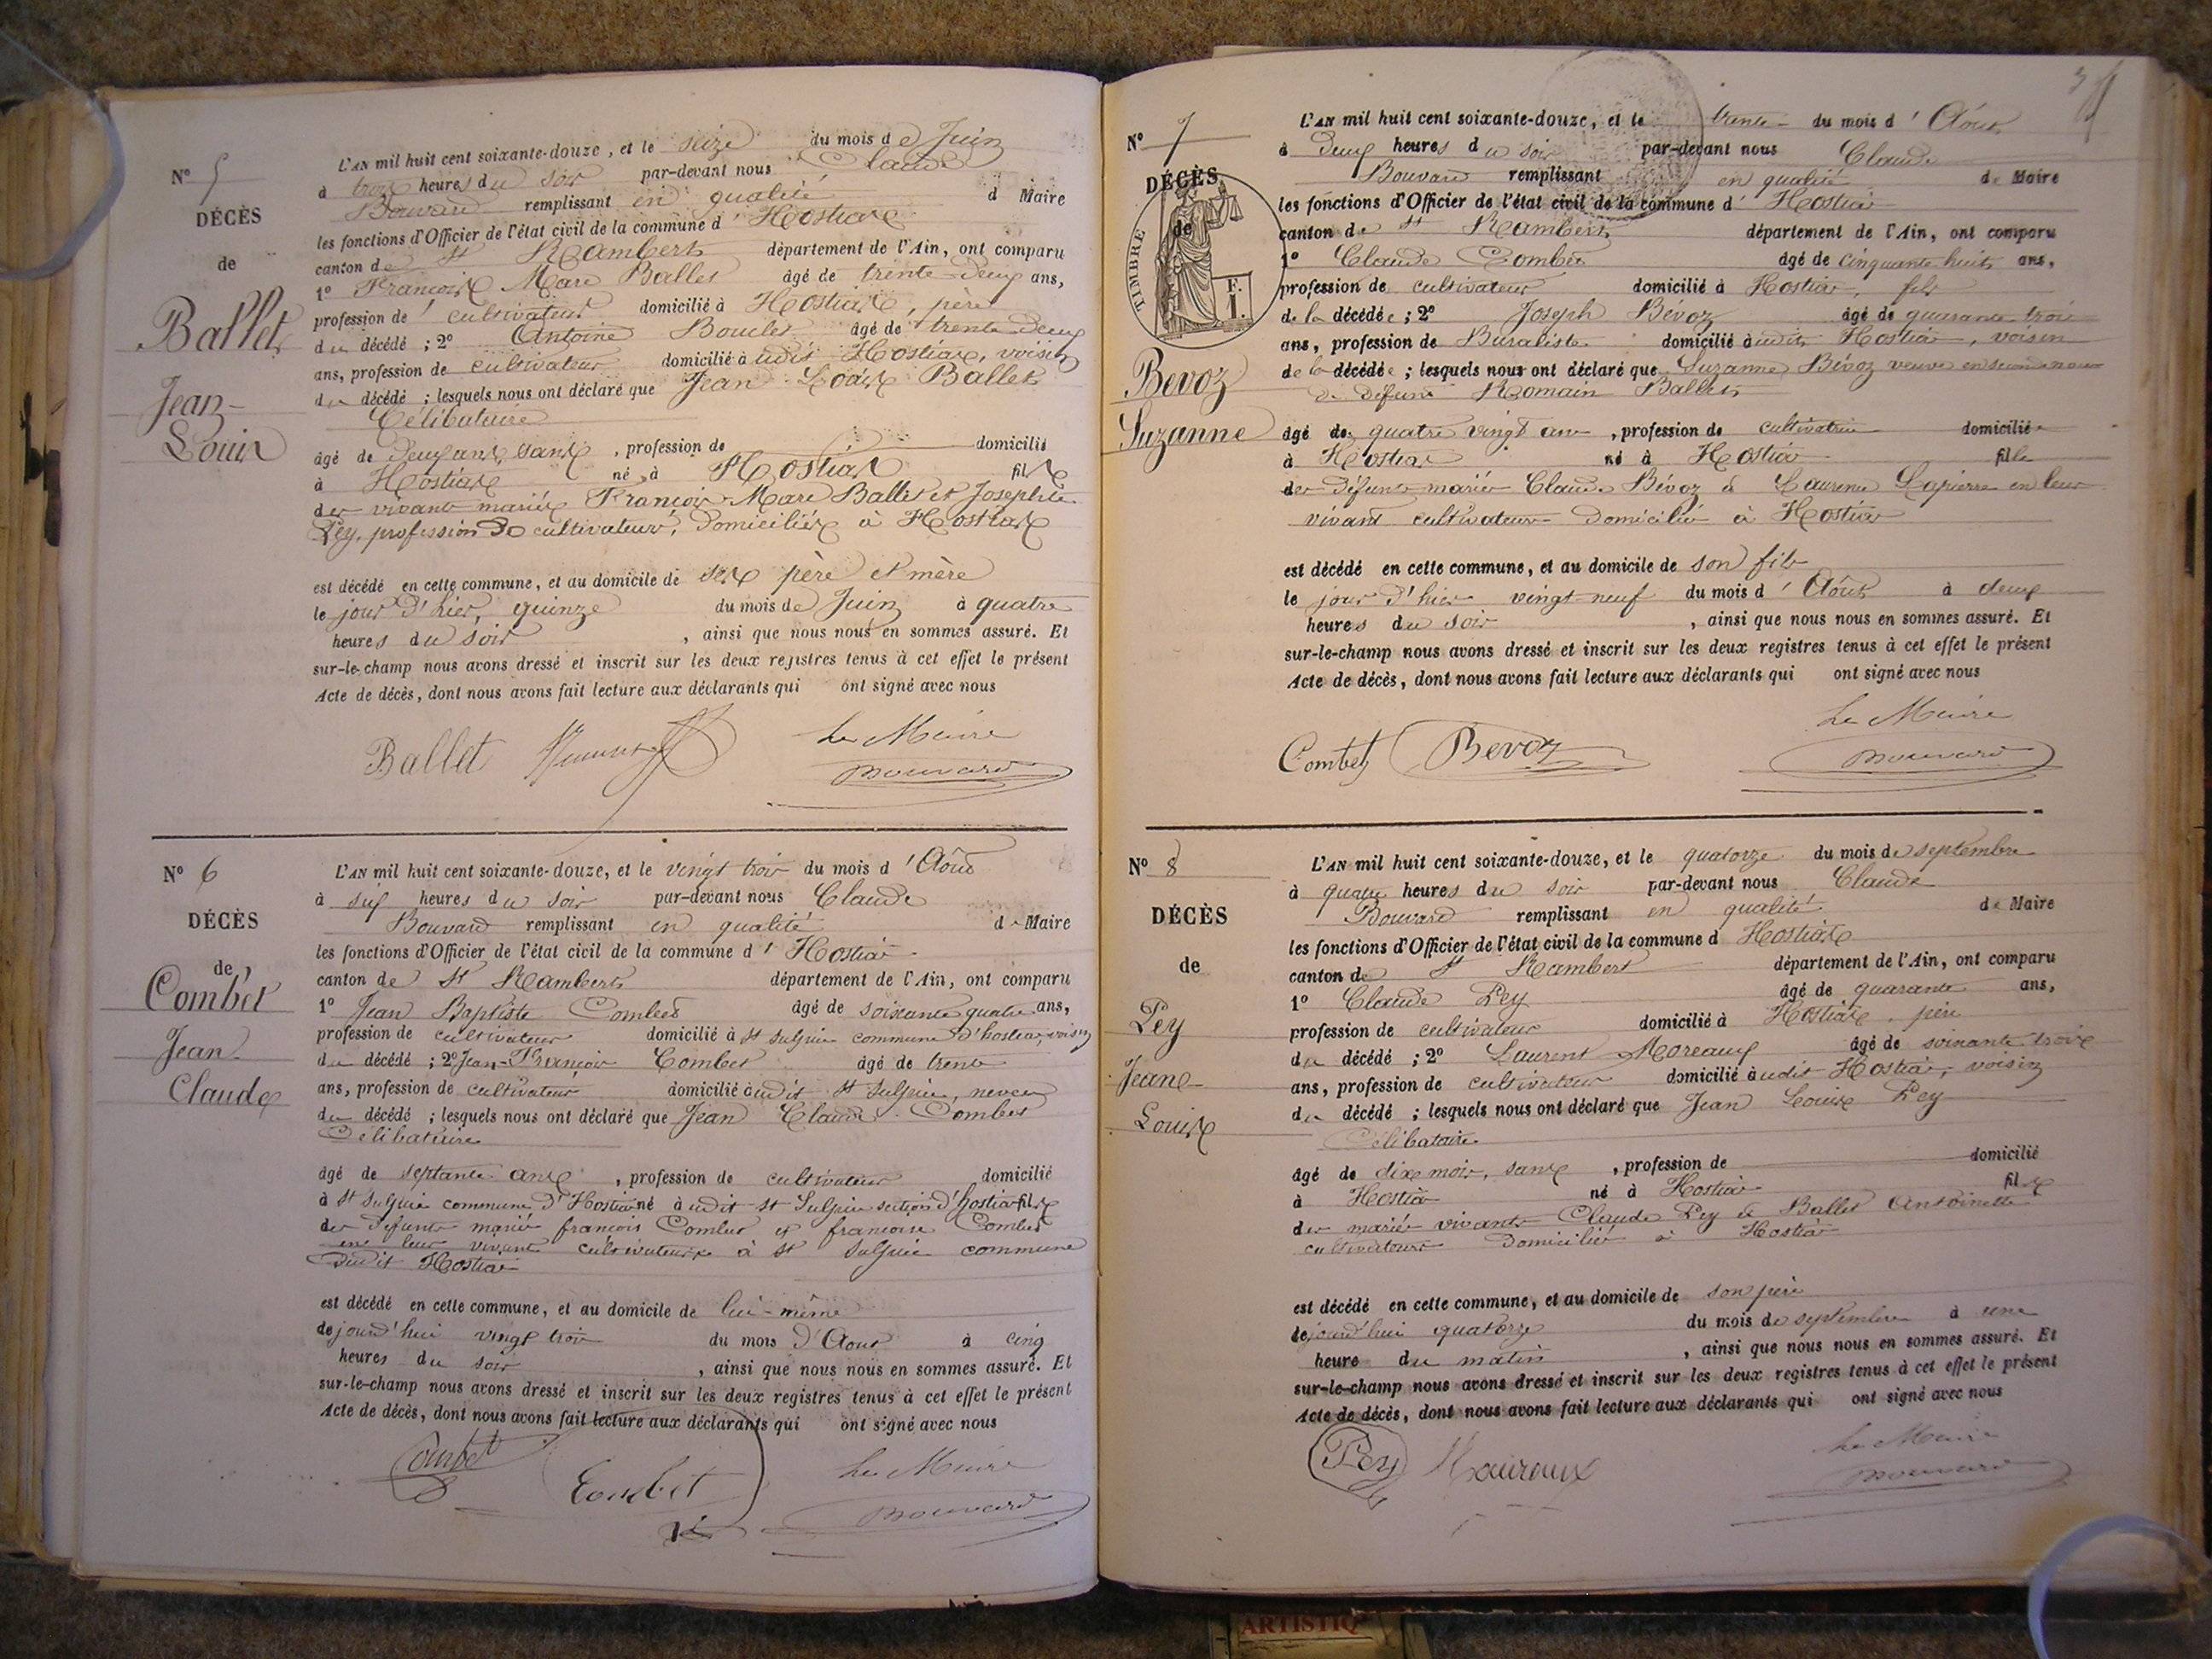 N° 5
DÉCÈS
de
Ballet
Jean-
Louis
L'AN mil huit cent soixante-douze, et le seize du mois de Juin
à trois heures du soir par-devant nous Claude
Bouvard remplissant en qualité d Maire
les fonctions d'Officier de l'état civil de la commune d' Hostiax
canton de St Rambert département de l'Ain, ont comparu
1° François Marc Ballet âgé de trente-deux ans,
profession de cultivateur domicilié à Hostiax, père
du décédé ; 2° Antoine âgé de trente deux
ans, profession de cultivateur domicilié à udit Hostiax, voisin
du décédé ; lesquels nous ont déclaré que Jean Louis Ballet
Célibataire
âgé de deux ans, sans , profession de domicilié
à Hostiax né à Hostiax fils
des vivants mariés François Marc Ballet et Josephte
Pey, profession de cultivateurs, domiciliés à Hostiax
est décédé en cette commune, et au domicile de ses père et mère
le jour d'hier, quinze du mois de Juin à quatre
heures du soir , ainsi que nous nous en sommes assuré. Et
sur-le-champ nous avons dressé et inscrit sur les deux registres tenus à cet effet le présent
Acte de décès, dont nous avons fait lecture aux déclarants qui ont signé avec nous
Le Maire
Ballet Bouvard
N° 6
DÉCÈS
de
Combet
Jean-
Claude
L'AN mil huit cent soixante-douze, et le vingt trois du mois d' Août
à six heures du soir par-devant nous Claude
Bouvard remplissant en qualité de Maire
les fonctions d'Officier de l'état civil de la commune d' Hostiax
canton de St Rambert département de l'Ain, ont comparu
1° Jean Baptiste Combet âgé de soixante quatre ans,
profession de cultivateur domicilié à St Sulpice commune d'hostiax, voisin
du décédé ; 2° Jean-François Combet âgé de trente
ans, profession de cultivateur domicilié àudit St Sulpice, neveu
du décédé ; lesquels nous ont déclaré que Jean Claude Combet
Célibataire
âgé de septante ans , profession de cultivateur domicilié
à St Sulpice commune d'Hostiax né à udit St Sulpice section d'hostiax fils
des défunts mariés françois Combet et françoise Combet
en leur vivant cultivateurs à St Sulpice commune
dudit Hostiax
est décédé en cette commune, et au domicile de lui-même
dejourd'hui vingt trois du mois d'Aout à cinq
heures du soir , ainsi que nous nous en sommes assuré. Et
sur-le-champ nous avons dressé et inscrit sur les deux registres tenus à cet effet le présent
Acte de décès, dont nous avons fait lecture aux déclarants qui ont signé avec nous
Combet Combet Le Maire
Bouvard
N° 7
DÉCÈS
de
TIMBRE
F.
1.
Bevoz
Suzanne
L'AN mil huit cent soixante-douze, et le trente du mois d' Août
à deux heures du soir par-devant nous Claude
Bouvard remplissant en qualité de Maire
les fonctions d'Officier de l'état civil de la commune d' Hostiax
canton de St Rambert département de l'Ain, ont comparu
1° Claude Combet âgé de cinquante huit ans,
profession de cultivateur domicilié à Hostiax, fils
de la décédée ; 2° Joseph Bévoz âgé de quarante trois
ans, profession de Buraliste domicilié àudit Hostiax, voisin
de la décédée ; lesquels nous ont déclaré que Suzanne Bévoz veuve en
de défunt Romain Ballet
âgé de quatre vingt ans , profession de cultivatrice domiciliée
à Hostiax né à Hostiax fille
des défunts mariés Claude Bévoz & Laurence Lapierre en leur
vivant cultivateurs domiciliés à Hostiax
est décédé en cette commune, et au domicile de son fils
le jour d'hier vingt-neuf du mois d' Août à deux
heures du soir , ainsi que nous nous en sommes assuré. Et
sur-le-champ nous avons dressé et inscrit sur les deux registres tenus à cet effet le présent
Acte de décès, dont nous avons fait lecture aux déclarants qui ont signé avec nous
Le Maire
Combet Bevoz Bouvard
N° 8
DÉCÈS
de
Pey
Jean-
Louis
L'AN mil huit cent soixante-douze, et le quatorze du mois de septembre
à quatre heures du soir par-devant nous Claude
Bouvard remplissant en qualité de Maire
les fonctions d'Officier de l'état civil de la commune d Hostiax
canton de St Rambert département de l'Ain, ont comparu
1° Claude Pey âgé de quarante ans,
profession de cultivateur domicilié à Hostiax, père
du décédé ; 2° Laurent Moreaux âgé de soixante trois
ans, profession de cultivateur domicilié àudit Hostiax, voisin
du décédé ; lesquels nous ont déclaré que Jean Louis Pey
Célibataire
âgé de dix mois, sans , profession de domicilié
à Hostiax né à Hostiax fils
des mariés vivants Claude Pey & Ballet Antoinette
cultivateurs domiciliés à Hostiax
est décédé en cette commune, et au domicile de son père
dejourd'hui quatorze du mois de septembre à une
heure du matin , ainsi que nous nous en sommes assuré. Et
sur-le-champ nous avons dressé et inscrit sur les deux registres tenus à cet effet le présent
Acte de décès, dont nous avons fait lecture aux déclarants qui ont signé avec nous
Le Maire
Pey Mauraux Bouvard
ARTISTIQ